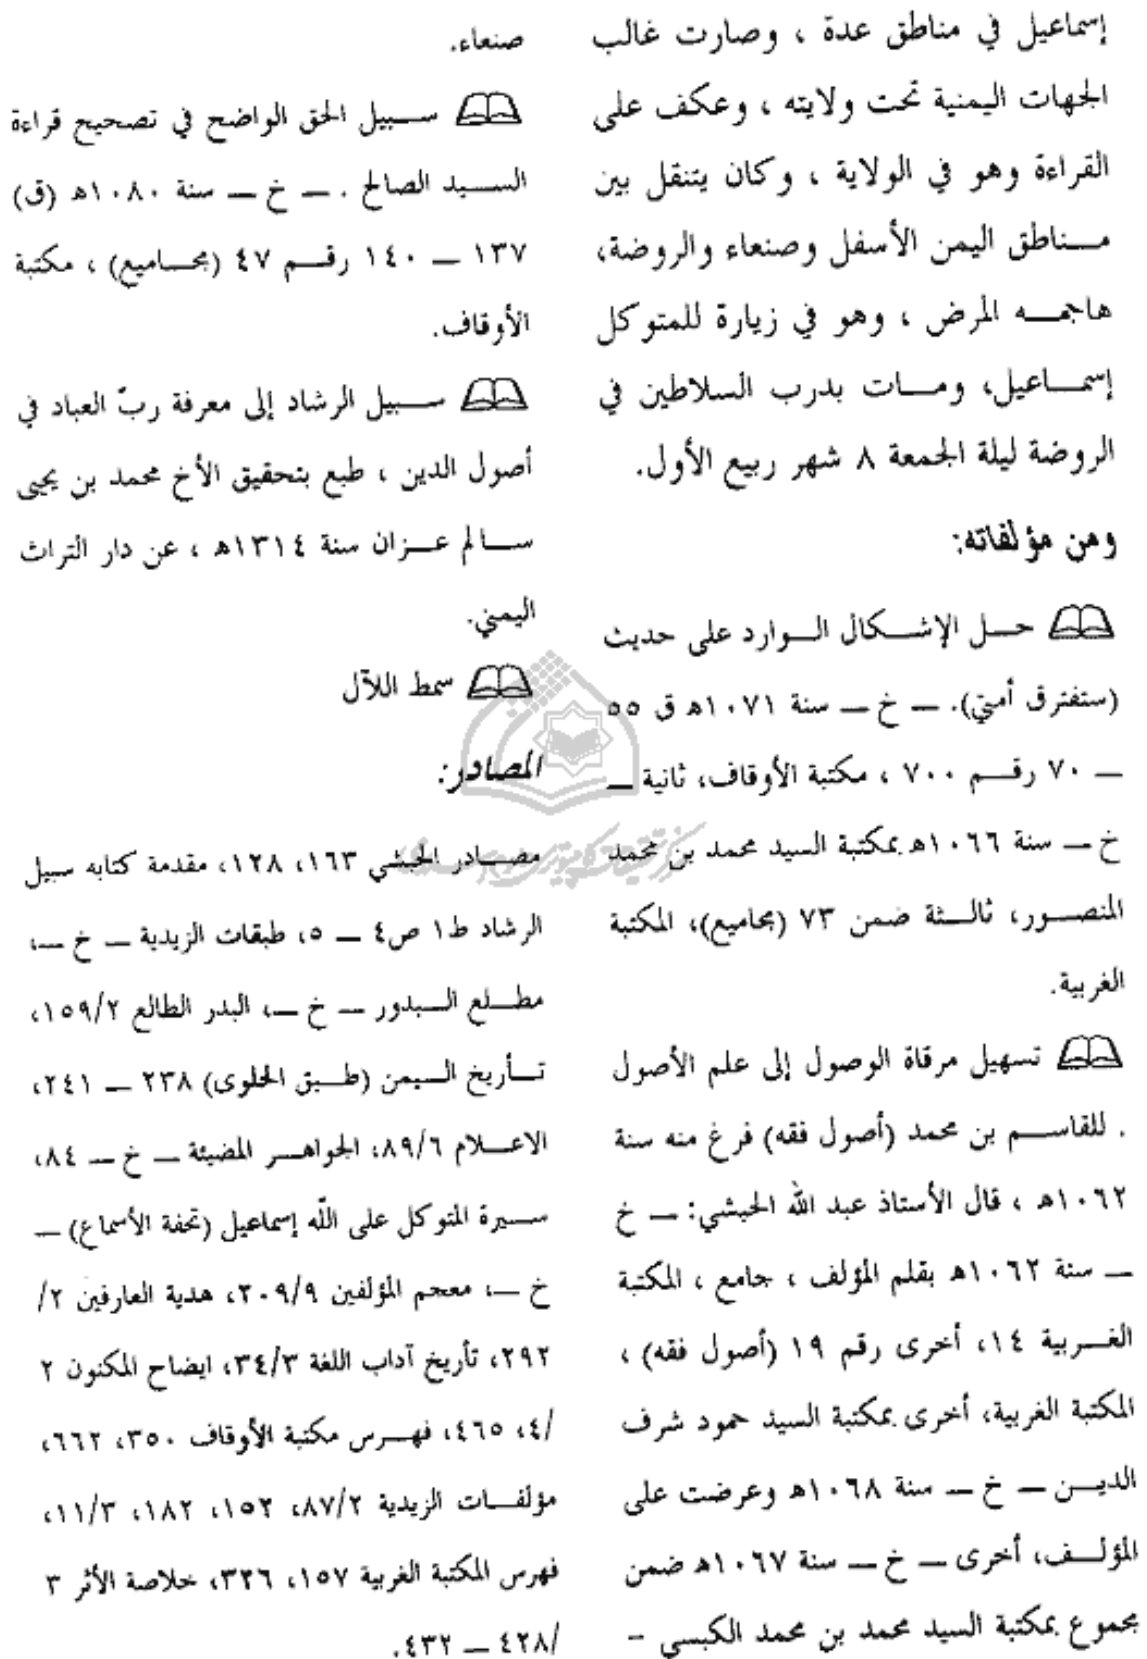 إسماعيل في مناطق عدة ، وصارت غالب
الجهات اليمنية تحت ولايته ، وعكف على
القراءة وهو في الولاية ، وكان يتنقل بين
مـــناطق اليمن الأسفل وصنعاء والروضة،
هاجمـــه المرض ، وهو في زيارة للمتوكل
إسمـــاعيل، ومـــات بدرب السلاطين في
الروضة ليلة الجمعة ٨ شهر ربيع الأول.
ومن مؤلفاته:
حـــل الإشـــكال الـــوارد على حديث
(ستفترق أمتي). ــ خ ــ سنة ١٠٧١هـ ق ٥٥
ــ ٧٠ رقـــم ٧٠٠ ، مكتبة الأوقاف، ثانية ــ
خ ــ سنة ١٠٦٦هـ بمكتبة السيد محمد بن محمد
المنصـــور، ثالـــثة ضمن ٧٣ (مجاميع)، المكتبة
الغربية.
تسهيل مرقاة الوصول إلى علم الأصول
. للقاســـم بن محمد (أصول فقه) فرغ منه سنة
١٠٦٢هـ ، قال الأستاذ عبد الله الحبشي: ــ خ
ــ سنة ١٠٦٢هـ بقلم المؤلف ، جامع ، المكتبة
الغـــربية ١٤، أخرى رقم ١٩ (أصول فقه) ،
المكتبة الغربية، أخرى بمكتبة السيد حمود شرف
الديـــن ــ خ ــ سنة ١٠٦٨هـ وعرضت على
المؤلـــف، أخرى ــ خ ــ سنة ١٠٦٧هـ ضمن
مجموع بمكتبة السيد محمد بن محمد الكبسي -
صنعاء.
ســـبيل الحق الواضح في تصحيح قراءة
الســـيد الصالح . ــ خ ــ سنة ١٠٨٠هـ (ق)
١٣٧ ــ ١٤٠ رقـــم ٤٧ (مجـــاميع) ، مكتبة
الأوقاف.
ســـبيل الرشاد إلى معرفة ربّ العباد في
أصول الدين ، طبع بتحقيق الأخ محمد بن يحيى
ســـالم عـــزان سنة ١٣١٤هـ ، عن دار التراث
اليمني.
سمط اللآل
المصادر:
مصـــادر الحبشي ١٦٣، ١٢٨، مقدمة كتابه سبيل
الرشاد ط١ ص٤ ــ ٥، طبقات الزيدية ــ خ ــ،
مطـــلع الـــبدور ــ خ ــ، البدر الطالع ١٥٩/٢،
تـــأريخ الـــيمن (طـــبق الحلوى) ٢٣٨ ــ ٢٤١،
الاعـــلام ٨٩/٦، الجواهـــر المضيئة ــ خ ــ ٨٤،
ســـيرة المتوكل على اللّه إسماعيل (تحفة الأسماع) ــ
خ ــ، معجم المؤلفين ٢٠٩/٩، هدية العارفين ٢/
٢٩٢، تأريخ آداب اللغة ٣٤/٣، ايضاح المكنون ٢
/٤، ٤٦٥، فهـــرس مكتبة الأوقاف ٣٥٠، ٦٦٢،
مؤلفـــات الزيدية ٨٧/٢، ١٥٢، ١٨٢، ١١/٣،
فهرس المكتبة الغربية ١٥٧، ٣٢٦، خلاصة الأثر ٣
/٤٢٨ ــ ٤٣٢.